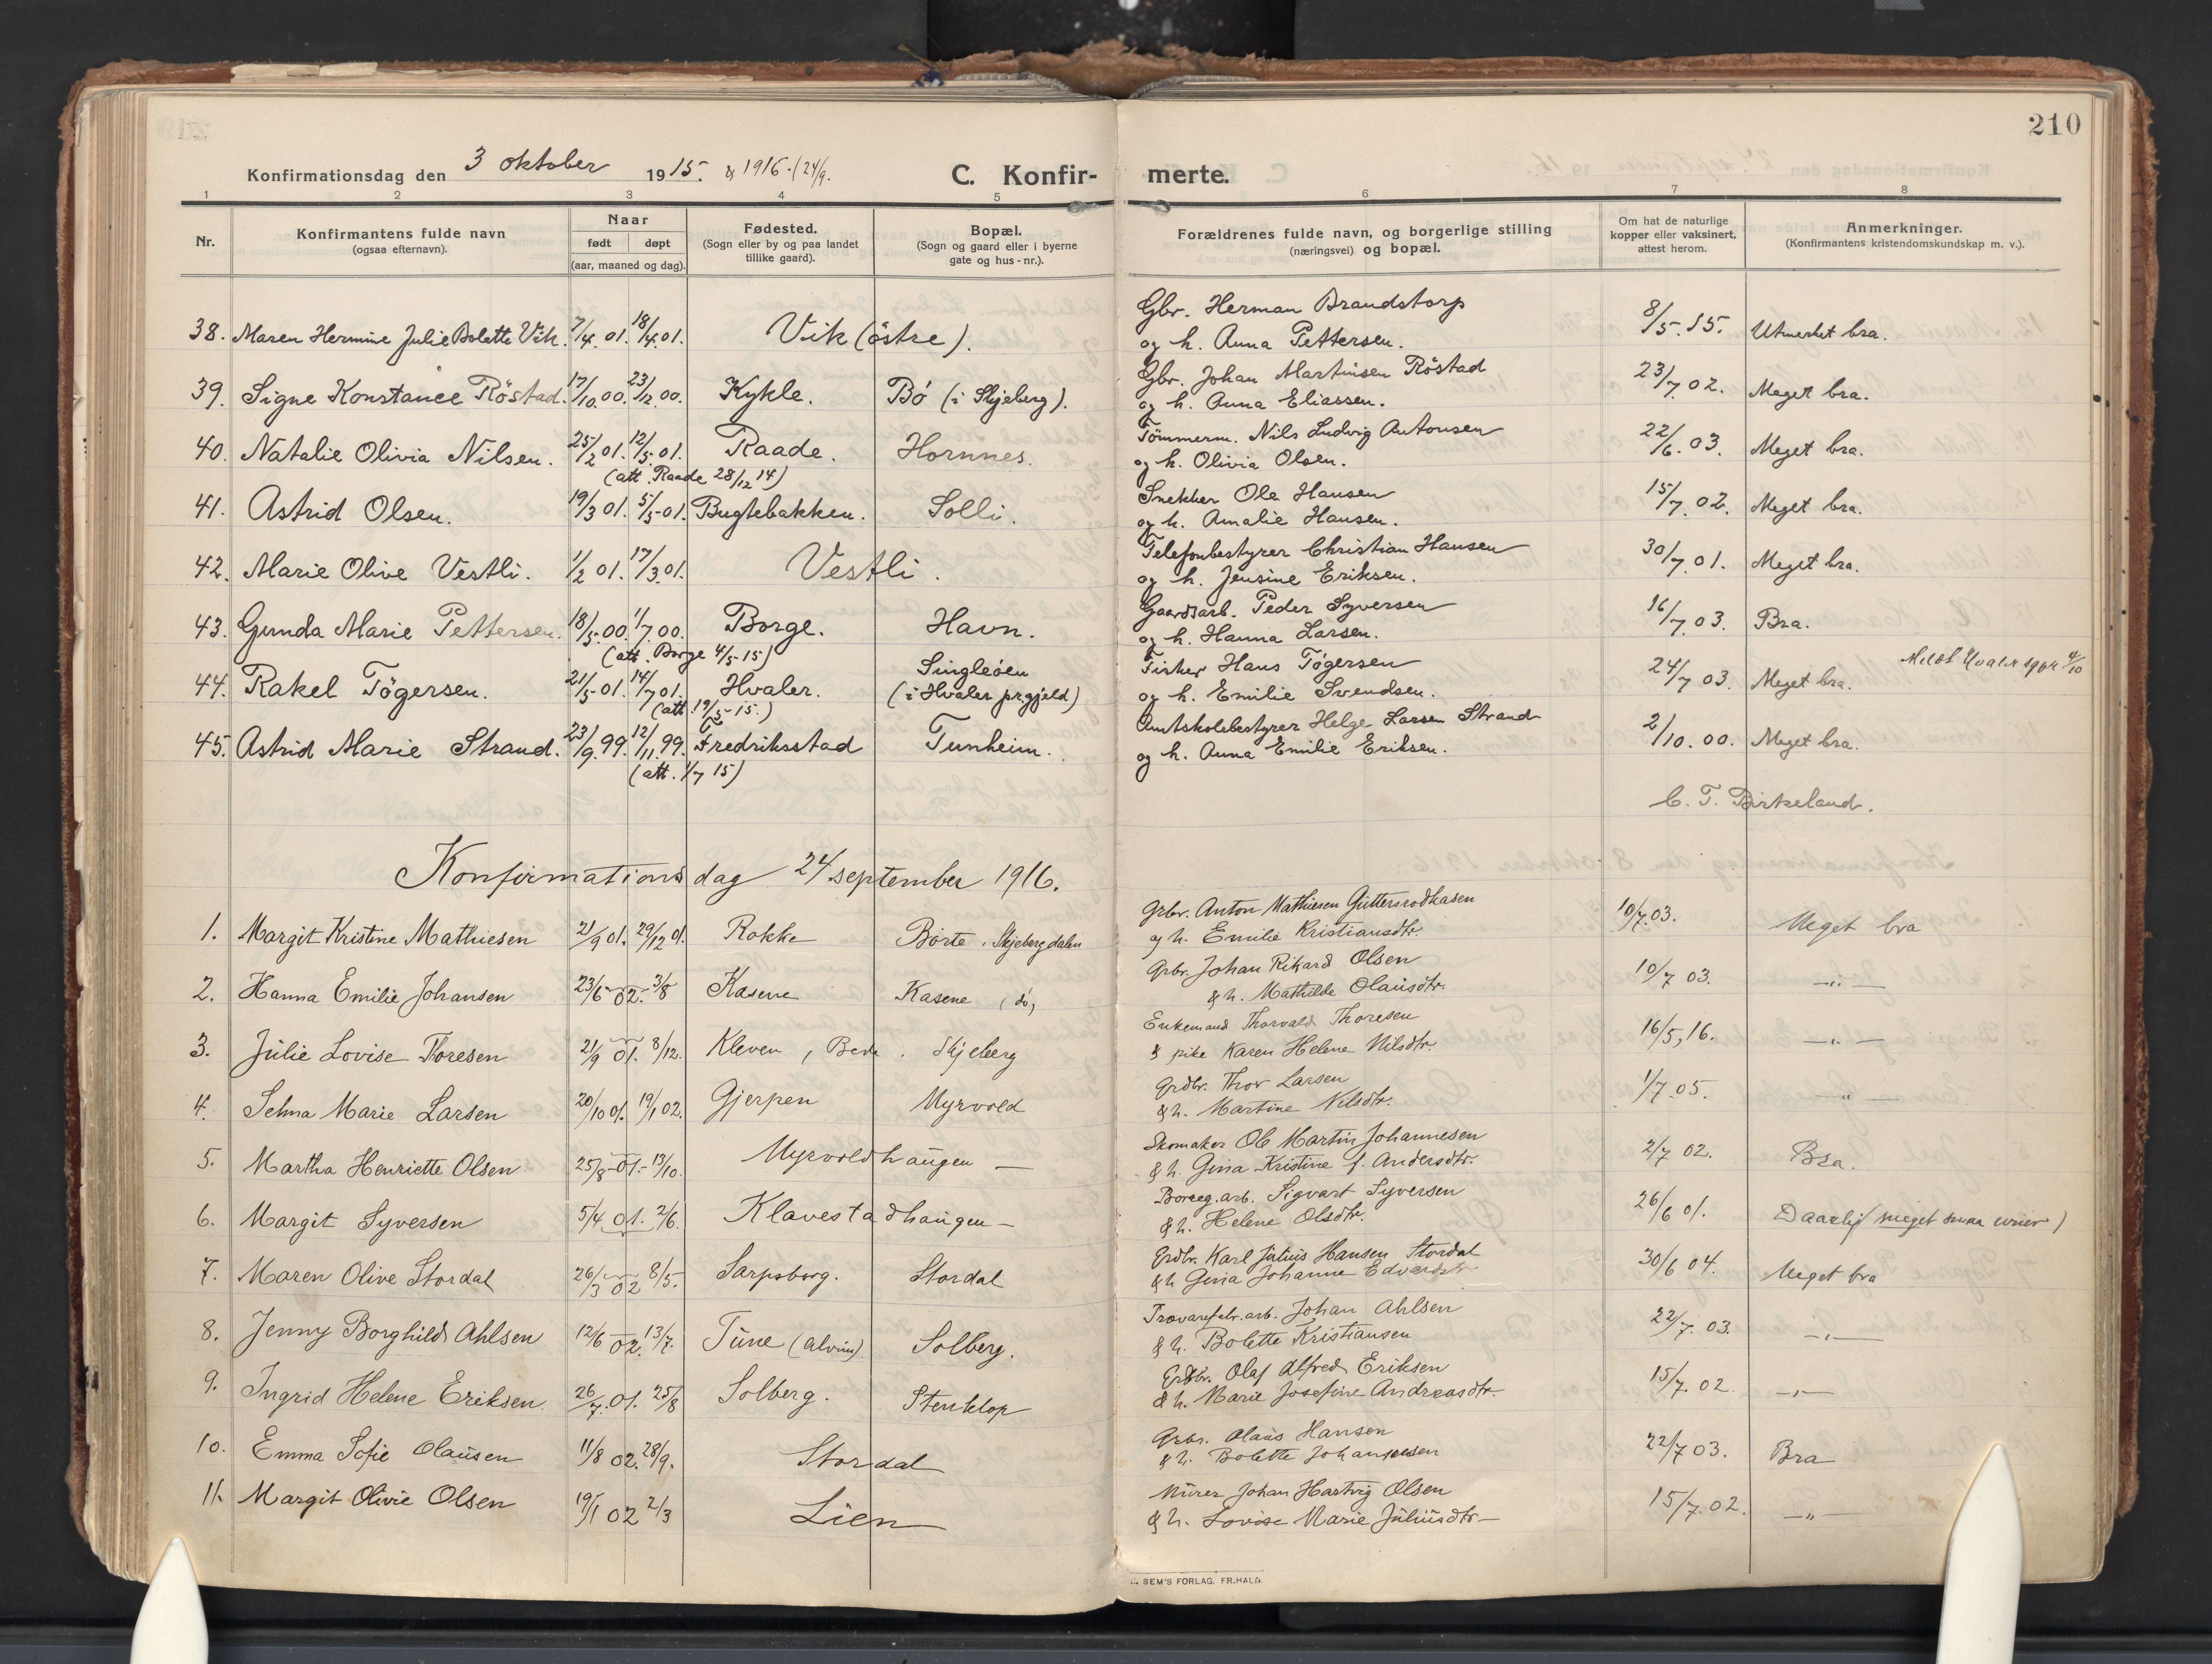 210
Konfirmationsdag den 3 oktober 1915. & 1916. (24/9.
C. Konfir- merte.
1 2 3 4 5 6 7 8
Nr.
Konfirmantens fulde navn
(ogsaa efternavn).
Naar
født døpt
(aar, maaned og dag).
Fødested.
(Sogn eller by og paa landet
tillike gaard).
Bopæl.
(Sogn og gaard eller i byerne
gate og hus-nr.).
Forældrenes fulde navn, og borgerlige stilling
(næringsvei) og bopæl.
Om hat de naturlige
kopper eller vaksinert,
attest herom.
Anmerkninger.
(Konfirmantens kristendomskundskap m. v.).
38. Maren Hermine Julie Bolette Vik. 7/4 01. 18/4 01. Vik (østre). Gbr. Herman Brandstorp 8/5.15. Utmerket bra.
og h. Anna Pettersen.
39. Signe Konstance Röstad. 17/10.00. 23/12.00. Kykle. Bö (i Skjeberg). Gbr. Johan Martinsen Röstad 23/7.02. Meget bra.
og h. Anna Eliassen.
40. Natalie Olivia Nilsen. 25/2 01. 12/5.01. Raade. Hornnes. Tömmerm. Nils Ludvig Antonsen 22/6.03. Meget bra.
(att. Raade 28/12 14) og h. Olivia Olsen.
41. Astrid Olsen. 19/3 01. 5/5-01. Bugtebakken. Solli. Snekker Ole Hansen 15/7.02. Meget bra.
og h. Amalie Hansen.
42. Marie Olive Vestli. 1/2 01. 17/3.01. Vestli. Telefonbestyrer Christian Hansen 30/7.01. Meget bra.
og h. Jensine Eriksen.
43. Gunda Marie Pettersen. 18/5.00. 1/7.00. Borge. Havn. Gaardsarb. Peder Syversen 16/7.03. Bra.
(att. Borge 4/5-15) og h. Hanna Larsen.
44. Rakel Tögersen. 21/5-01. 14/7 01. Hvaler. Singleöen Fisker Hans Tögersen 24/7 03. Meget bra. Meldt Hvaler sgpr 4/10
(att. 19/5-15.) (i Hvaler prgjeld) og h. Emilie Svendsen.
45. Astrid Marie Strand. 23/9.99. 12/11.99. Fredriksstad Tunheim. Amtskolebestyrer Helge Larsen Strand 2/10.00. Meget bra.
(att. 1/7 15) og h. Anna Emilie Eriksen.
C. T. Birkeland.
Konfirmationsdag 24 september 1916.
1. Margit Kristine Mathiesen 21/9 01. 29/12 01. Rokke Børte, Skjebergdalen Grbr. Anton Mathiesen Guttersrodkasen 10/7.03. Meget bra
og h. Emilie Kristiansdtr.
2. Hanna Emilie Johansen 23/6-02. 3/8 Kasene Kasene (do) Grbr. Johan Rikard Olsen 10/7 03. —"—
& h. Mathilde Olausdtr.
3. Julie Lovise Thoresen 21/9 01. 8/12. Kleven, Skjeberg Enkemand Thorvald Thoresen 16/5, 16. —"—
& pike Karen Helene Nilsdtr.
4. Selma Marie Larsen 20/10 01. 19/1 02. Gjerpen Myrvold Grdbr. Thor Larsen 1/7.05. —"—
& h. Martine Nilsdtr.
5. Martha Henriette Olsen 25/8-01.- 13/10. Myrvoldhaugen — Skomaker Ole Martin Johannesen 2/7 02. Bra.
& h. Gina Kristine f. Andersdtr.
6. Margit Syversen 5/4 01. 2/6. Klavestadhaugen — Borreg. arb. Sigvart Syversen 26/6 01. Daarlig (meget smaa evner)
& h. Helene Olsdtr.
7. Maren Olive Stordal 26/3 02 8/5. Sarpsborg. Stordal Grdbr. Karl Julius Hansen Stordal 30/6 04. Meget bra
& h Gina Johanne Edvardsdtr
8. Jenny Borghild Ahlsen 12/6 02. 13/7. Tune (Alvim). Solberg. Trævarefabr. arb. Johan Ahlsen 22/7. 03. —"—
& h. Bolette Kristiansen
9. Ingrid Helene Eriksen. 26/7. 01. 25/8 Solberg. Stenklop Grdbr. Olaf Alfred Eriksen 15/7. 02. —"—
& h. Marie Josefine Andreasdtr.
10. Emma Sofie Olausen 11/8 02. 28/9. Stordal Grbr. Olaus Hansen 22/7 03. Bra
& h. Bolette Johannesen
11. Margit Olivie Olsen 19/1 02 2/3 Lien Murer Johan Hartvig Olsen 15/7. 02. —"—
& h. Lovise Marie Juliusdtr—
SEM'S FORLAG, FR.HALD.